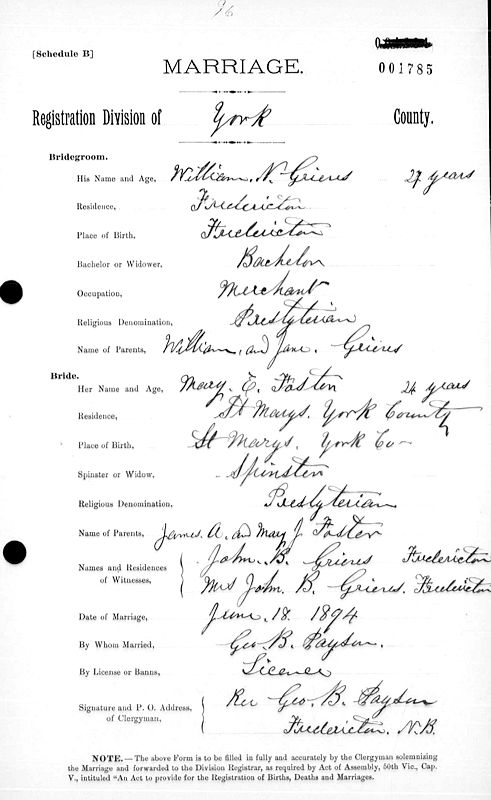 26
[Schedule B]
MARRIAGE.
001785
Registration Division of York County.
Bridegroom.
His Name and Age, William. N. Grieves 27 years
Residence, Fredericton
Place of Birth, Fredericton
Bachelor or Widower, Bachelor
Occupation, Merchant
Religious Denomination, Presbyterian
Name of Parents, William, and Jane. Grieves
Bride.
Her Name and Age, Mary. E. Foster 24 years
Residence, St Marys. York County
Place of Birth, St Marys. York Co—
Spinster or Widow, Spinster
Religious Denomination, Presbyterian
Name of Parents, James. A. and Mary J. Foster
Names and Residences of Witnesses, John. B. Grieves Fredericton
Mrs John. B. Grieves. Fredericton
Date of Marriage, June. 18. 1894
By Whom Married, Geo. B. Payson.
By License or Banns, Licence
Signature and P. O. Address, of Clergyman, Rev Geo. B. Payson
Fredericton. N.B.
NOTE.—The above Form is to be filled in fully and accurately by the Clergyman solemnizing
the Marriage and forwarded to the Division Registrar, as required by Act of Assembly, 50th Vic., Cap.
V., intituled "An Act to provide for the Registration of Births, Deaths and Marriages.